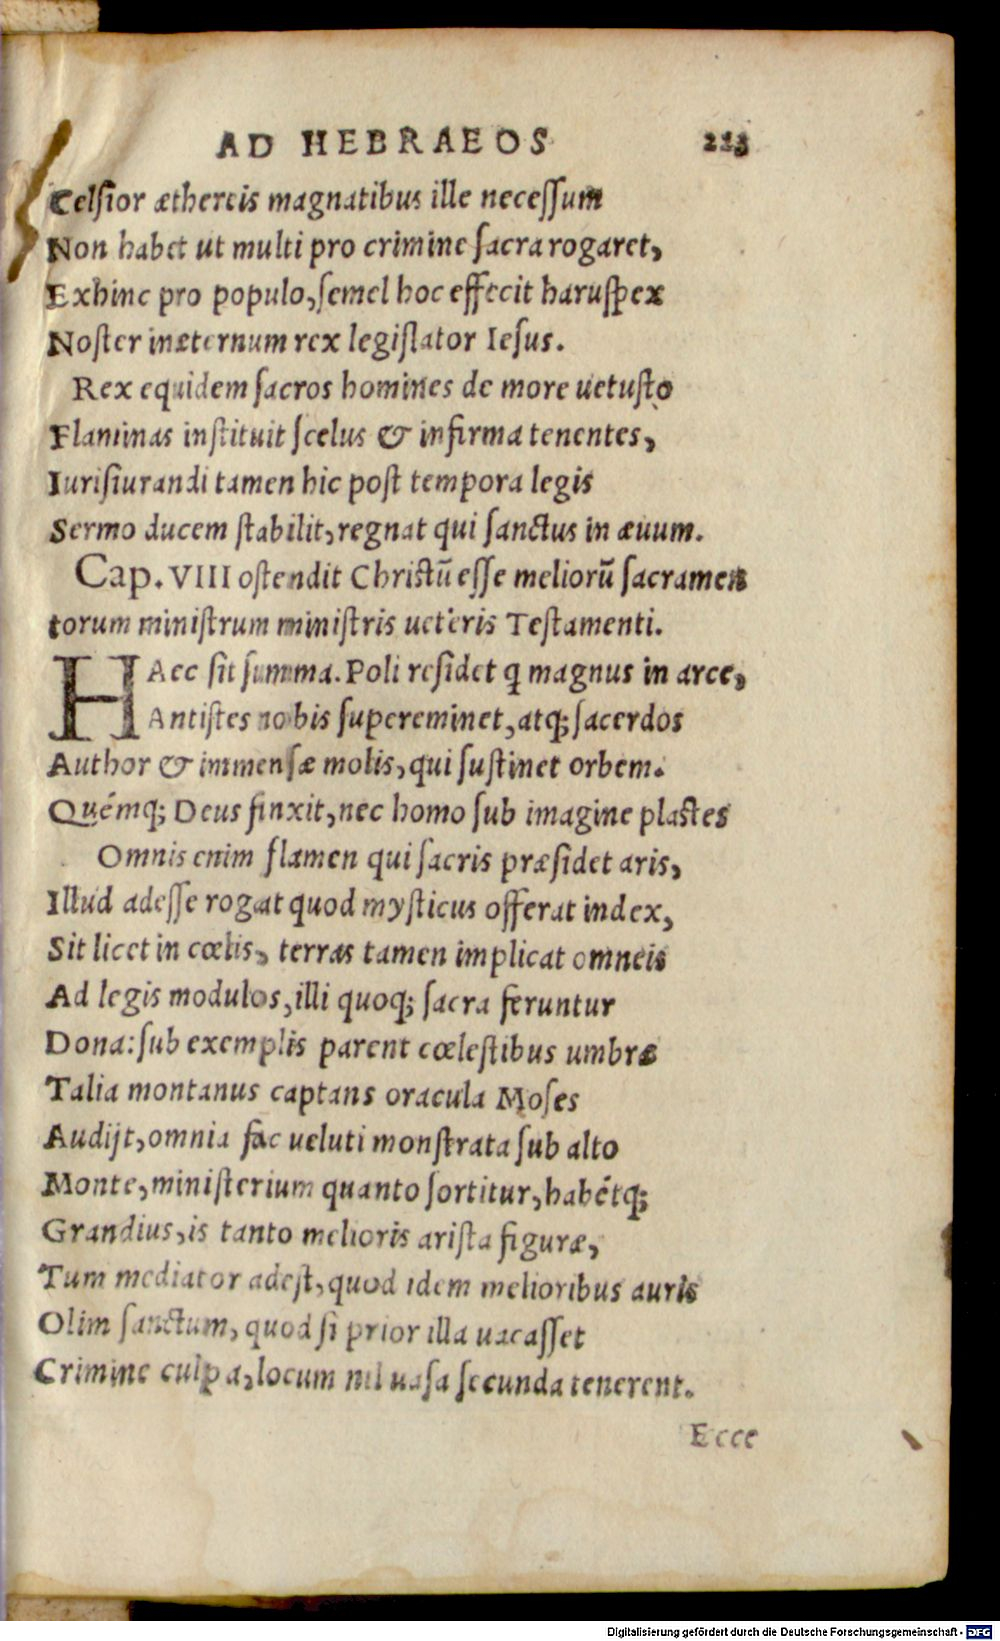 AD HEBRAEOS 223
Celsior æthereis magnatibus ille necessum
Non habet ut multi pro crimine sacra rogaret,
Exhinc pro populo, semel hoc effecit haruspex
Noster in æternum rex legislator Iesus.
Rex equidem sacros homines de more uetusto
Flaminas instituit scelus & infirma tenentes,
Iurisiurandi tamen hic post tempora legis
Sermo ducem stabilit, regnat qui sanctus in æuum.
Cap. VIII ostendit Christũ esse meliorũ sacramen
torum ministrum ministris ueteris Testamenti.
HAec sit summa. Poli residet q magnus in arce,
Antistes nobis supereminet, atq; sacerdos
Author & immensæ molis, qui sustinet orbem.
Quémq; Deus finxit, nec homo sub imagine plastes
Omnis enim flamen qui sacris præsidet aris,
Illud adesse rogat quod mysticus offerat index,
Sit licet in cœlis, terras tamen implicat omneis
Ad legis modulos, illi quoq; sacra feruntur
Dona: sub exemplis parent cœlestibus umbræ
Talia montanus captans oracula Moses
Audijt, omnia fac ueluti monstrata sub alto
Monte, ministerium quanto sortitur, habétq;
Grandius, is tanto melioris arista figuræ,
Tum mediator adest, quod idem melioribus auris
Olim sanctum, quod si prior illa uacasset
Crimine culpa, locum nil uasa secunda tenerent.
Ecce
Digitalisierung gefördert durch die Deutsche Forschungsgemeinschaft - DFG